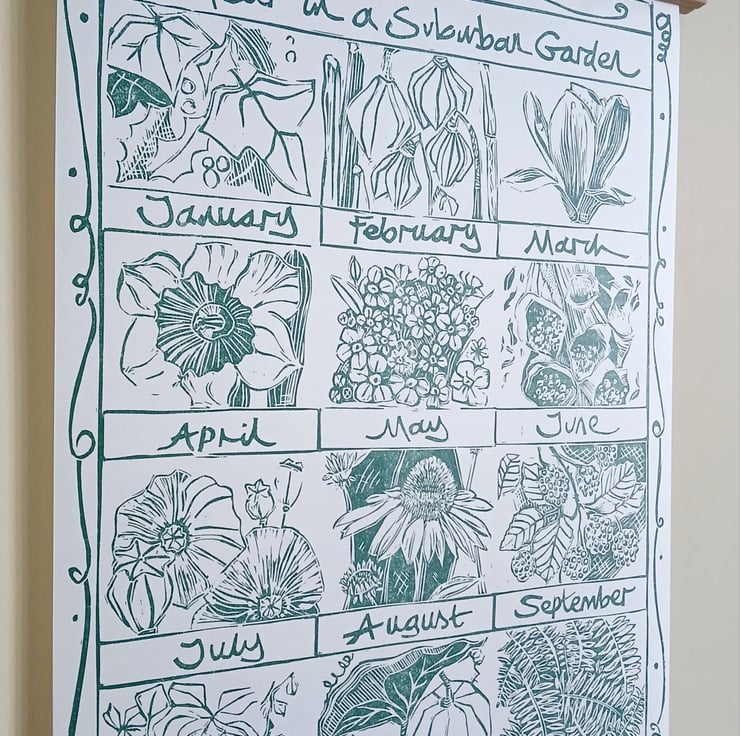 in a Suburban Garden
January
February
March
April
May
June
July
August
September